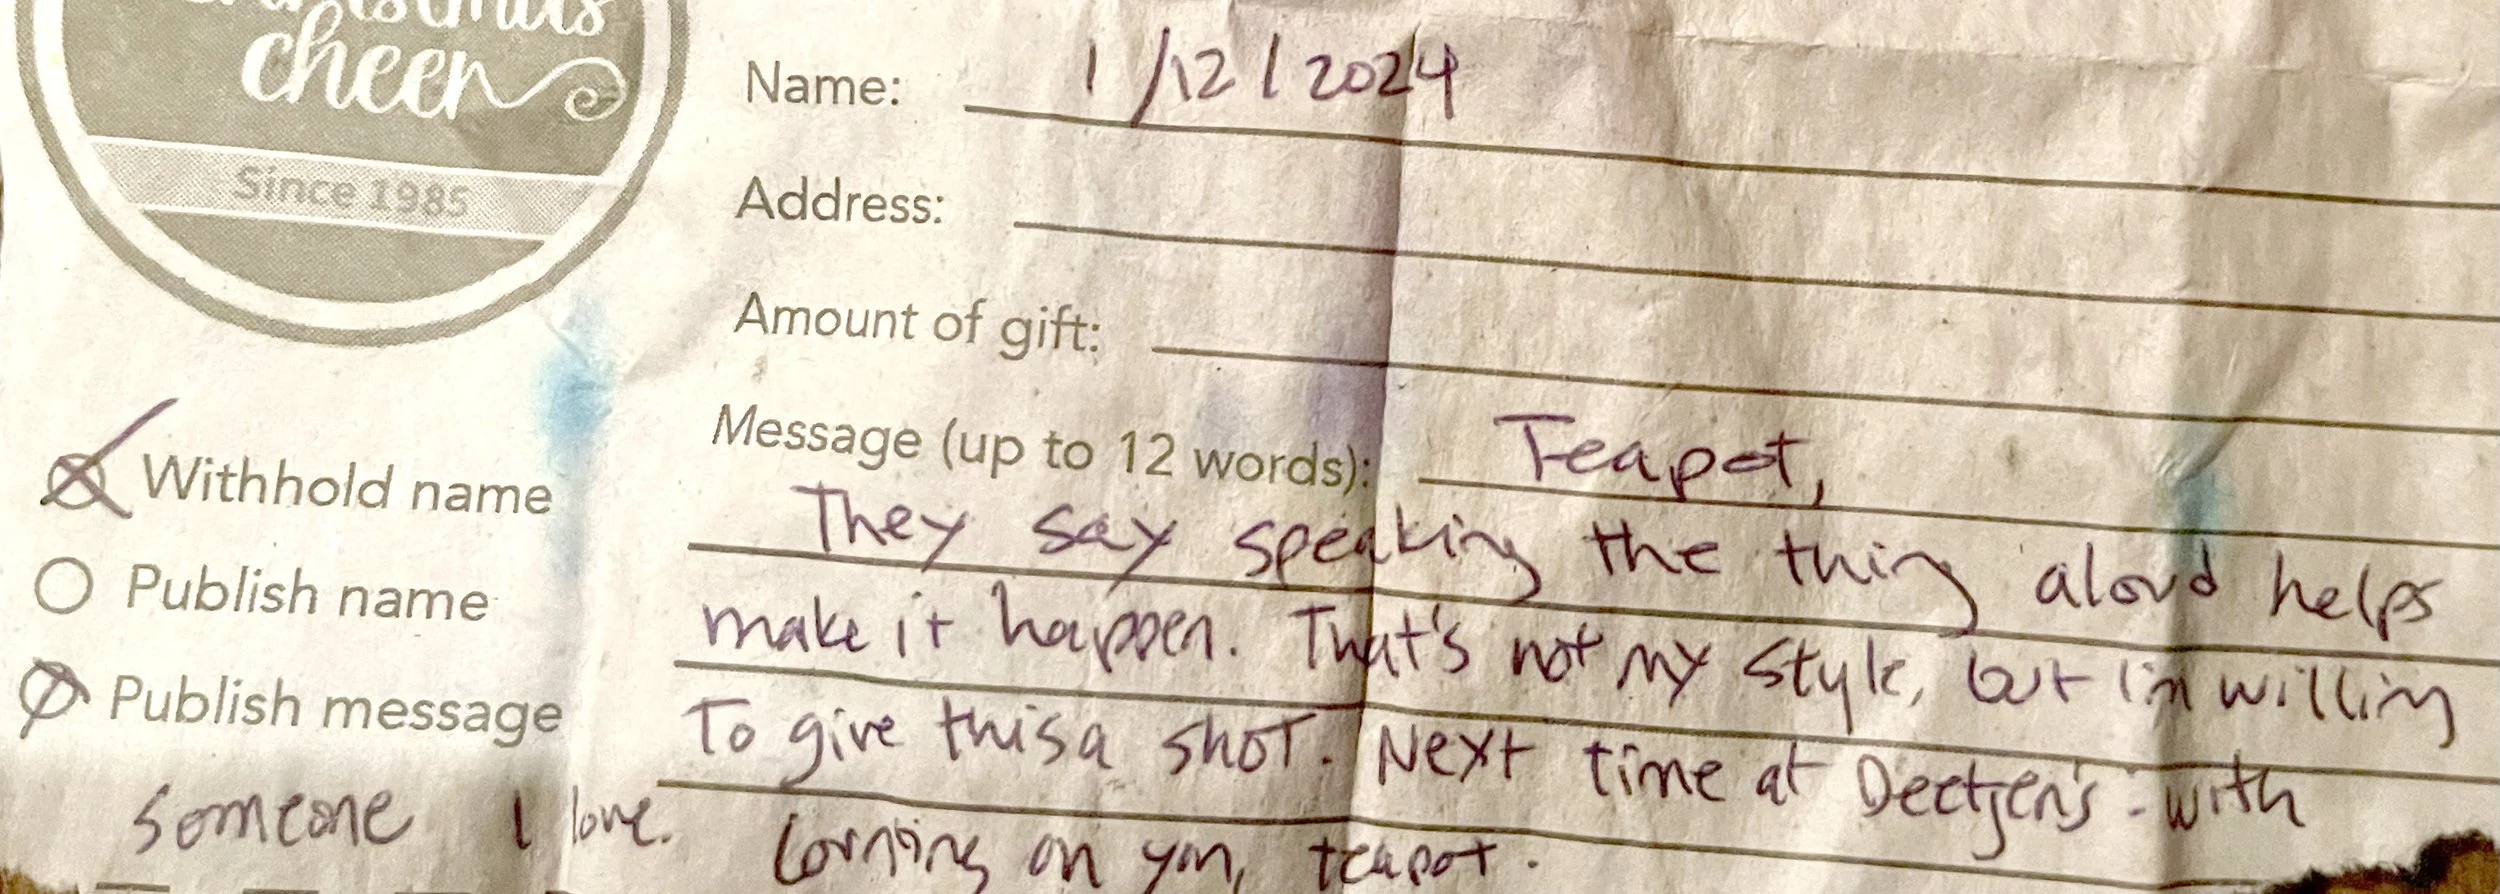 cheer
Since 1985
Name: 1/12/2024
Address:
Amount of gift:
Message (up to 12 words): Teapot,
They say speaking the thing aloud helps
make it happen. That's not my style, but I'm willing
To give this a shot. Next time at Deetjen's - with
someone I love. Counting on you, teapot.
Withhold name
Publish name
Publish message